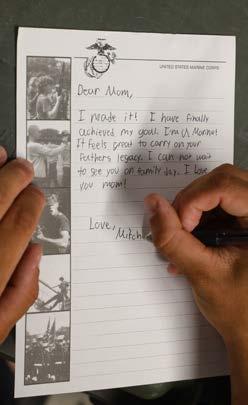 UNITED STATES MARINE CORPS
Dear Mom,
I made it! I have finally
achieved my goal. I'm a Marine!
It feels great to carry on your
fathers legacy. I can not wait
to see you on family day. I love
you mom!
Love,